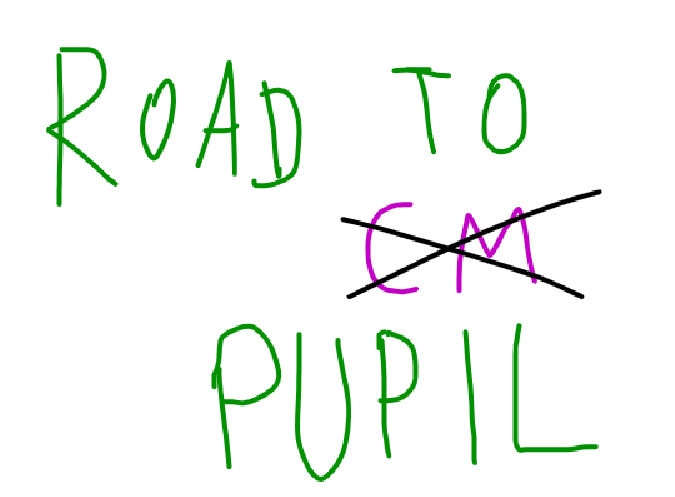 ROAD TO
CM
PUPIL